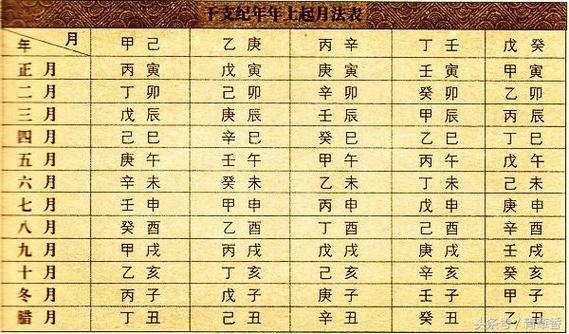 干支纪年年上起月法表
年 月 甲 己 乙 庚 丙 辛 丁 壬 戊 癸
正 月 丙 寅 戊 寅 庚 寅 壬 寅 甲 寅
二 月 丁 卯 己 卯 辛 卯 癸 卯 乙 卯
三 月 戊 辰 庚 辰 壬 辰 甲 辰 丙 辰
四 月 己 巳 辛 巳 癸 巳 乙 巳 丁 巳
五 月 庚 午 壬 午 甲 午 丙 午 戊 午
六 月 辛 未 癸 未 乙 未 丁 未 己 未
七 月 壬 申 甲 申 丙 申 戊 申 庚 申
八 月 癸 酉 乙 酉 丁 酉 己 酉 辛 酉
九 月 甲 戌 丙 戌 戊 戌 庚 戌 壬 戌
十 月 乙 亥 丁 亥 己 亥 辛 亥 癸 亥
冬 月 丙 子 戊 子 庚 子 壬 子 甲 子
腊 月 丁 丑 己 丑 辛 丑 癸 丑 乙 丑
头条号 /